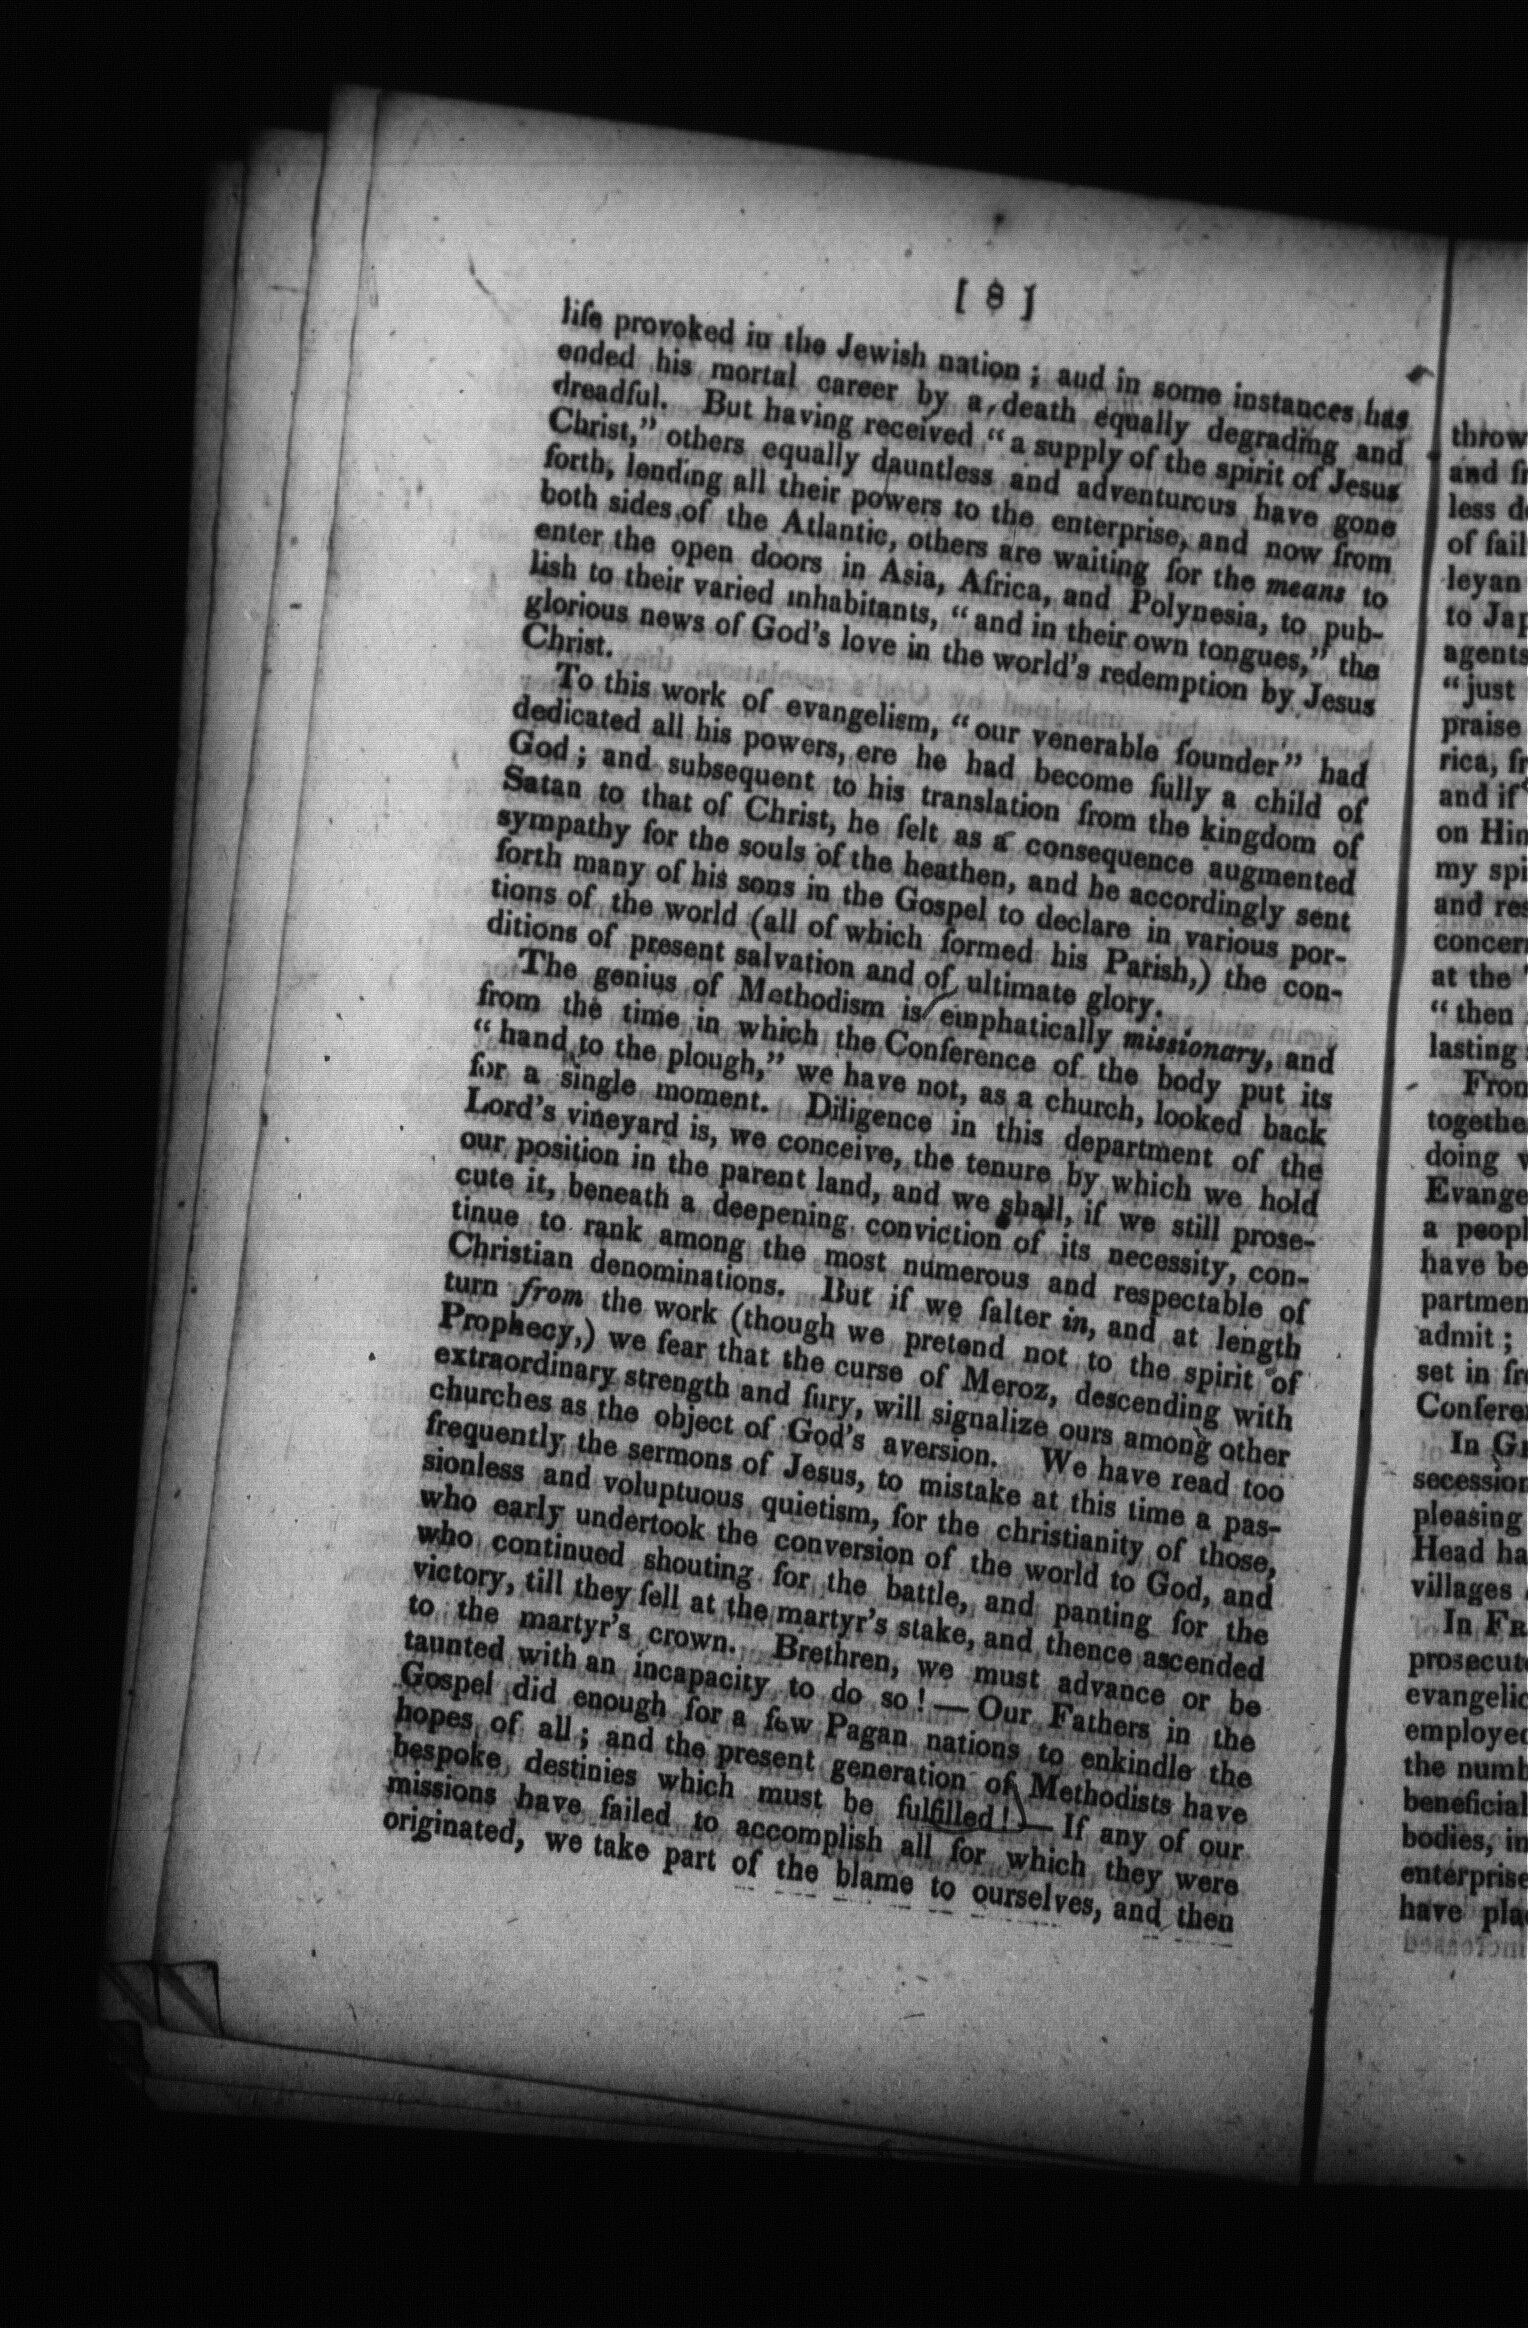 [ 8 ]
life provoked in the Jewish nation ; and in some instances has
ended his mortal career by a death equally degrading and
dreadful. But having received “ a supply of the spirit of Jesus
Christ,” others equally dauntless and adventurous have gone
forth, lending all their powers to the enterprise, and now from
both sides of the Atlantic, others are waiting for the means to
enter the open doors in Asia, Africa, and Polynesia, to pub-
lish to their varied inhabitants, “ and in their own tongues,” the
glorious news of God’s love in the world’s redemption by Jesus
Christ.
To this work of evangelism, “ our venerable founder ” had
dedicated all his powers, ere he had become fully a child of
God ; and subsequent to his translation from the kingdom of
Satan to that of Christ, he felt as a consequence augmented
sympathy for the souls of the heathen, and he accordingly sent
forth many of his sons in the Gospel to declare in various por-
tions of the world (all of which formed his Parish,) the con-
ditions of present salvation and of ultimate glory.
The genius of Methodism is emphatically missionary, and
from the time in which the Conference of the body put its
“ hand to the plough,” we have not, as a church, looked back
for a single moment. Diligence in this department of the
Lord’s vineyard is, we conceive, the tenure by which we hold
our position in the parent land, and we shall, if we still prose-
cute it, beneath a deepening conviction of its necessity, con-
tinue to rank among the most numerous and respectable of
Christian denominations. But if we falter in, and at length
turn from the work (though we pretend not to the spirit of
Prophecy,) we fear that the curse of Meroz, descending with
extraordinary strength and fury, will signalize ours among other
churches as the object of God’s aversion. We have read too
frequently the sermons of Jesus, to mistake at this time a pas-
sionless and voluptuous quietism, for the christianity of those,
who early undertook the conversion of the world to God, and
who continued shouting for the battle, and panting for the
victory, till they fell at the martyr’s stake, and thence ascended
to the martyr’s crown. Brethren, we must advance or be
taunted with an incapacity to do so ! — Our Fathers in the
Gospel did enough for a few Pagan nations to enkindle the
hopes of all ; and the present generation of Methodists have
bespoke destinies which must be fulfilled ! — If any of our
missions have failed to accomplish all for which they were
originated, we take part of the blame to ourselves, and then
throw
and
less
of
leyan
to
agents
“ just
praise
rica,
and if
on
my
and
at the
“ then
lasting
doing
a
have
admit ;
set in
In
pleasing
Head
villages
In
employed
the
bodies,
have